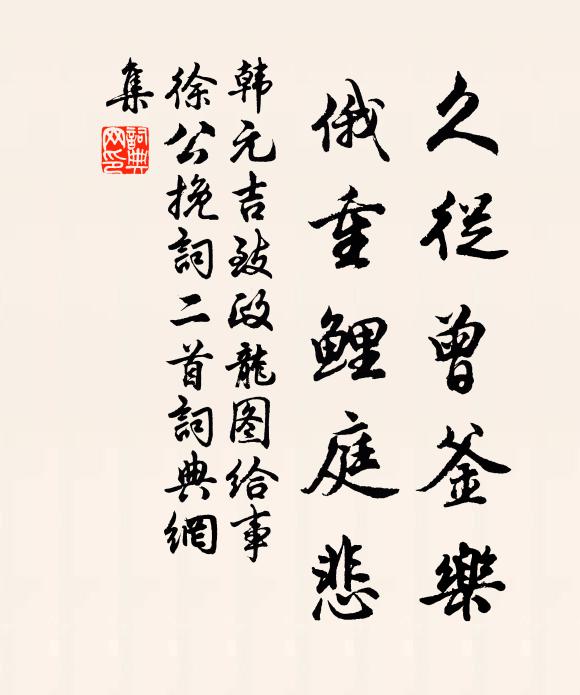 久從曾釜樂
俄重鯉庭悲
韩元吉致政龍图给事
徐公挽詞二首詞典網
集
詞典
网印